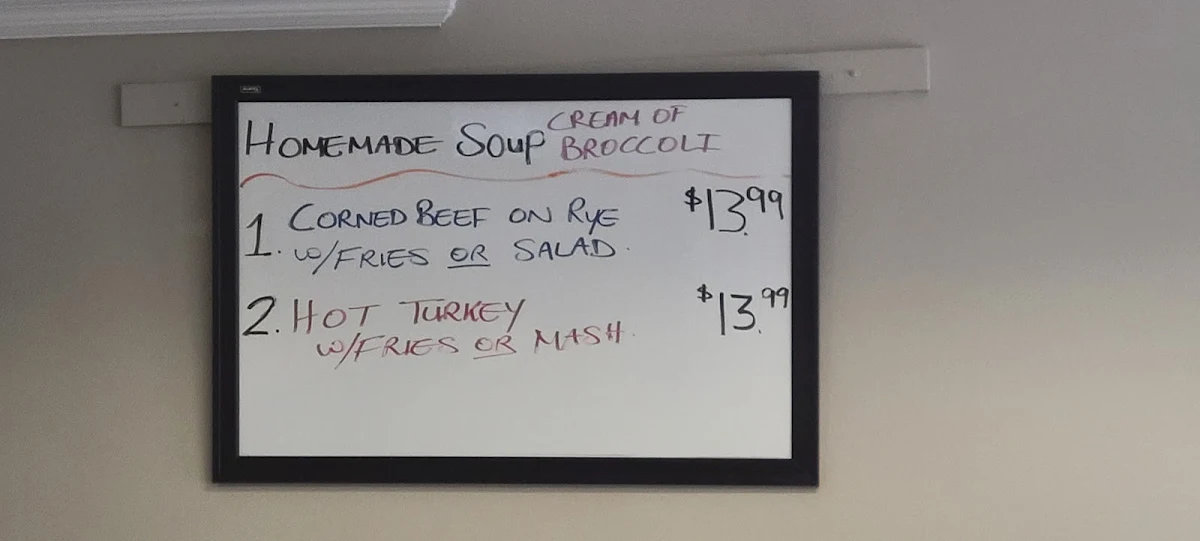 HOMEMADE SOUP CREAM OF BROCCOLI
1. CORNED BEEF ON RYE $13.99
W/FRIES OR SALAD.
2. HOT TURKEY $13.99
W/FRIES OR MASH.